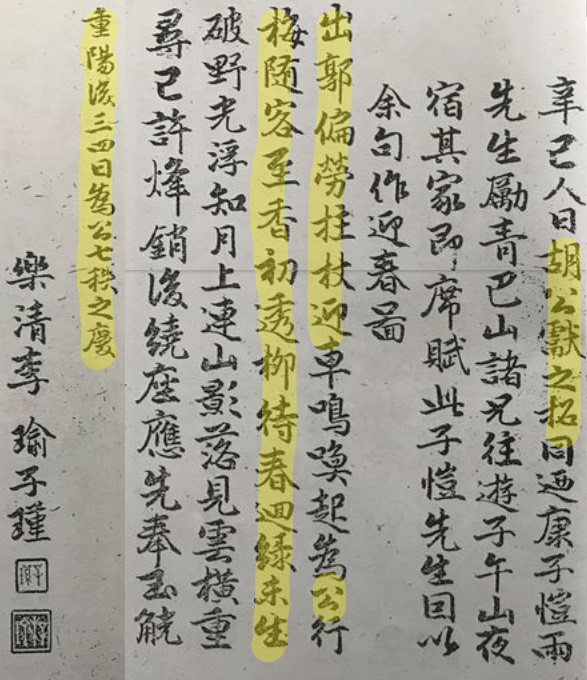 辛巳人日胡公獻之招同迺康子愷兩
先生勵青巴山諸兄往遊子午山夜
宿其家即席賦此子愷先生因以
余句作迎春啚
出郭偏勞拄杖迎車鳴喚起為公行
梅隨客至香初透柳待春迴綠未生
破野光浮知月上連山影落見雲橫重
尋已許烽銷後繞座應先奉玉觥
重陽後三四日為公七秩之慶
樂清李瑜子瑾